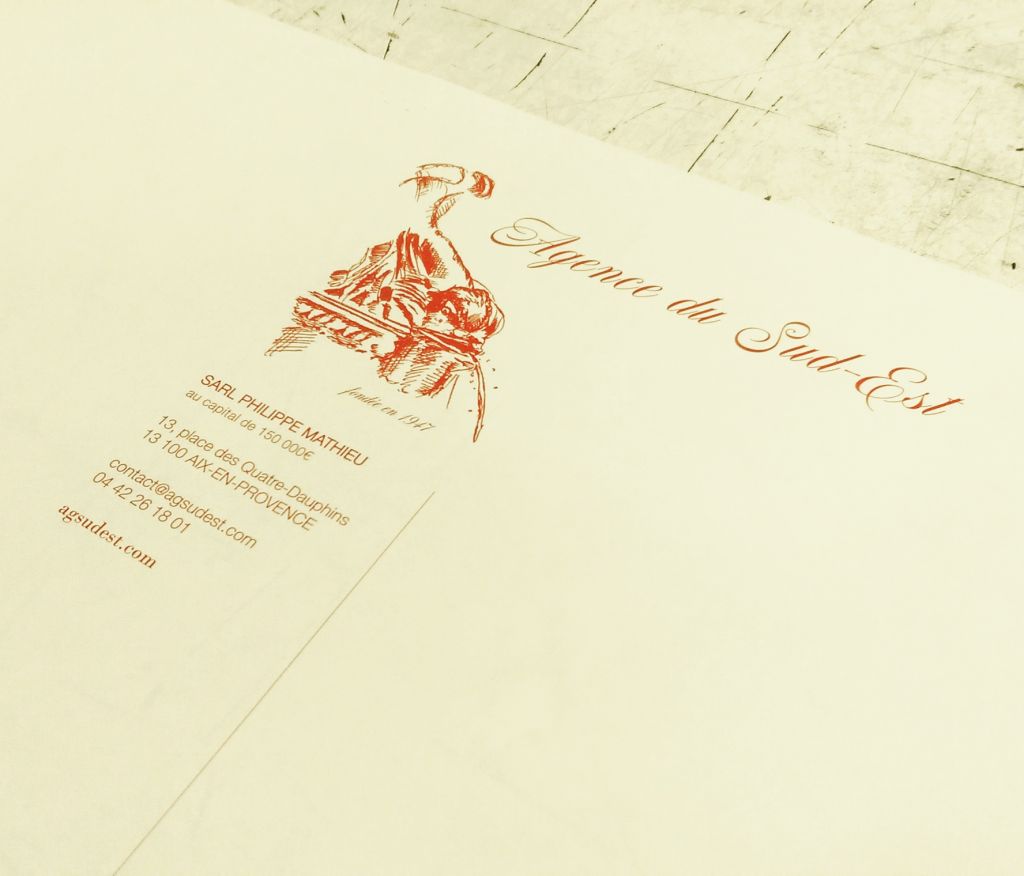 Agence du Sud-Est
fondée en 1947
SARL PHILIPPE MATHIEU
au capital de 150 000€
13, place des Quatre-Dauphins
13 100 AIX-EN-PROVENCE
contact@agsudest.com
04 42 26 18 01
agsudest.com